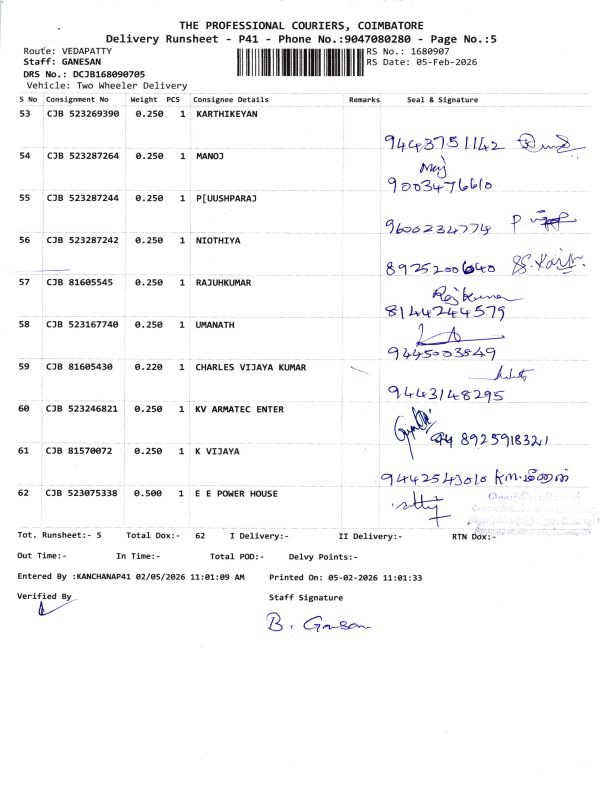 THE PROFESSIONAL COURIERS, COIMBATORE
Delivery Runsheet - P41 - Phone No.:9047080280 - Page No.:5
Route: VEDAPATTY RS No.: 1680907
Staff: GANESAN RS Date: 05-Feb-2026
DRS No.: DCJB168090705
Vehicle: Two Wheeler Delivery
S No Consignment No Weight PCS Consignee Details Remarks Seal & Signature
53 CJB 523269390 0.250 1 KARTHIKEYAN
9443751142
54 CJB 523287264 0.250 1 MANOJ
Manoj
9003476610
55 CJB 523287244 0.250 1 P[UUSHPARAJ
9600234774 P
56 CJB 523287242 0.250 1 NIOTHIYA
8925200640
57 CJB 81605545 0.250 1 RAJUHKUMAR
Rajkumar
8144244579
58 CJB 523167740 0.250 1 UMANATH
9445003849
59 CJB 81605430 0.220 1 CHARLES VIJAYA KUMAR
9443148295
60 CJB 523246821 0.250 1 KV ARMATEC ENTER
8925918321
61 CJB 81570072 0.250 1 K VIJAYA
9442543010 K.M.மீனாள்
62 CJB 523075338 0.500 1 E E POWER HOUSE
Tot. Runsheet:- 5 Total Dox:- 62 I Delivery:- II Delivery:- RTN Dox:-
Out Time:- In Time:- Total POD:- Delvy Points:-
Entered By :KANCHANAP41 02/05/2026 11:01:09 AM Printed On: 05-02-2026 11:01:33
Verified By Staff Signature
B. Ganesan